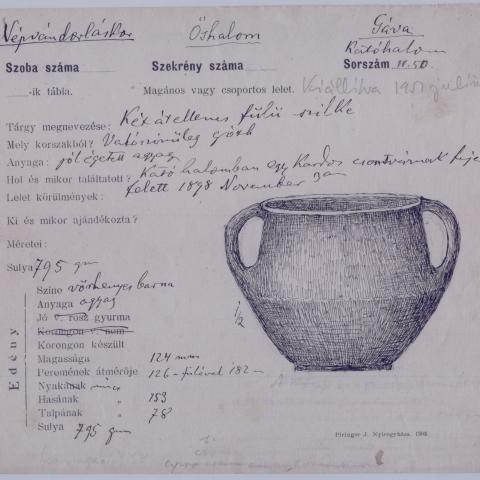 Népvándorláskor Őshalom Gáva
Katóhalom
Szoba száma Szekrény száma Sorszám IV. 50.
-ik tábla. Magános vagy csoportos lelet. Kiállítva 1951 július
Tárgy megnevezése: Két átellenes fülű szilke
Mely korszakból? Valószinüleg góth
Anyaga: jól égetett agyag
Hol és mikor találtatott? Kató halomban egy kardos csontvárnak feje
Lelet körülmények: felett 1898 November 3án
Ki és mikor ajándékozta?
Méretei:
Sulya 795 gr
Edény
Szine vörhenyes barna
Anyaga agyag
Jó v. rosz gyurma
Korongon v. nem
Korongon készült
Magassága 124 mm
Peremének átmérője 126 - fülével 182 -
Nyakának nincs "
Hasának " 153
Talpának " 78
Sulya 795 gm
1/2
Piringer J. Nyiregyháza. 1903